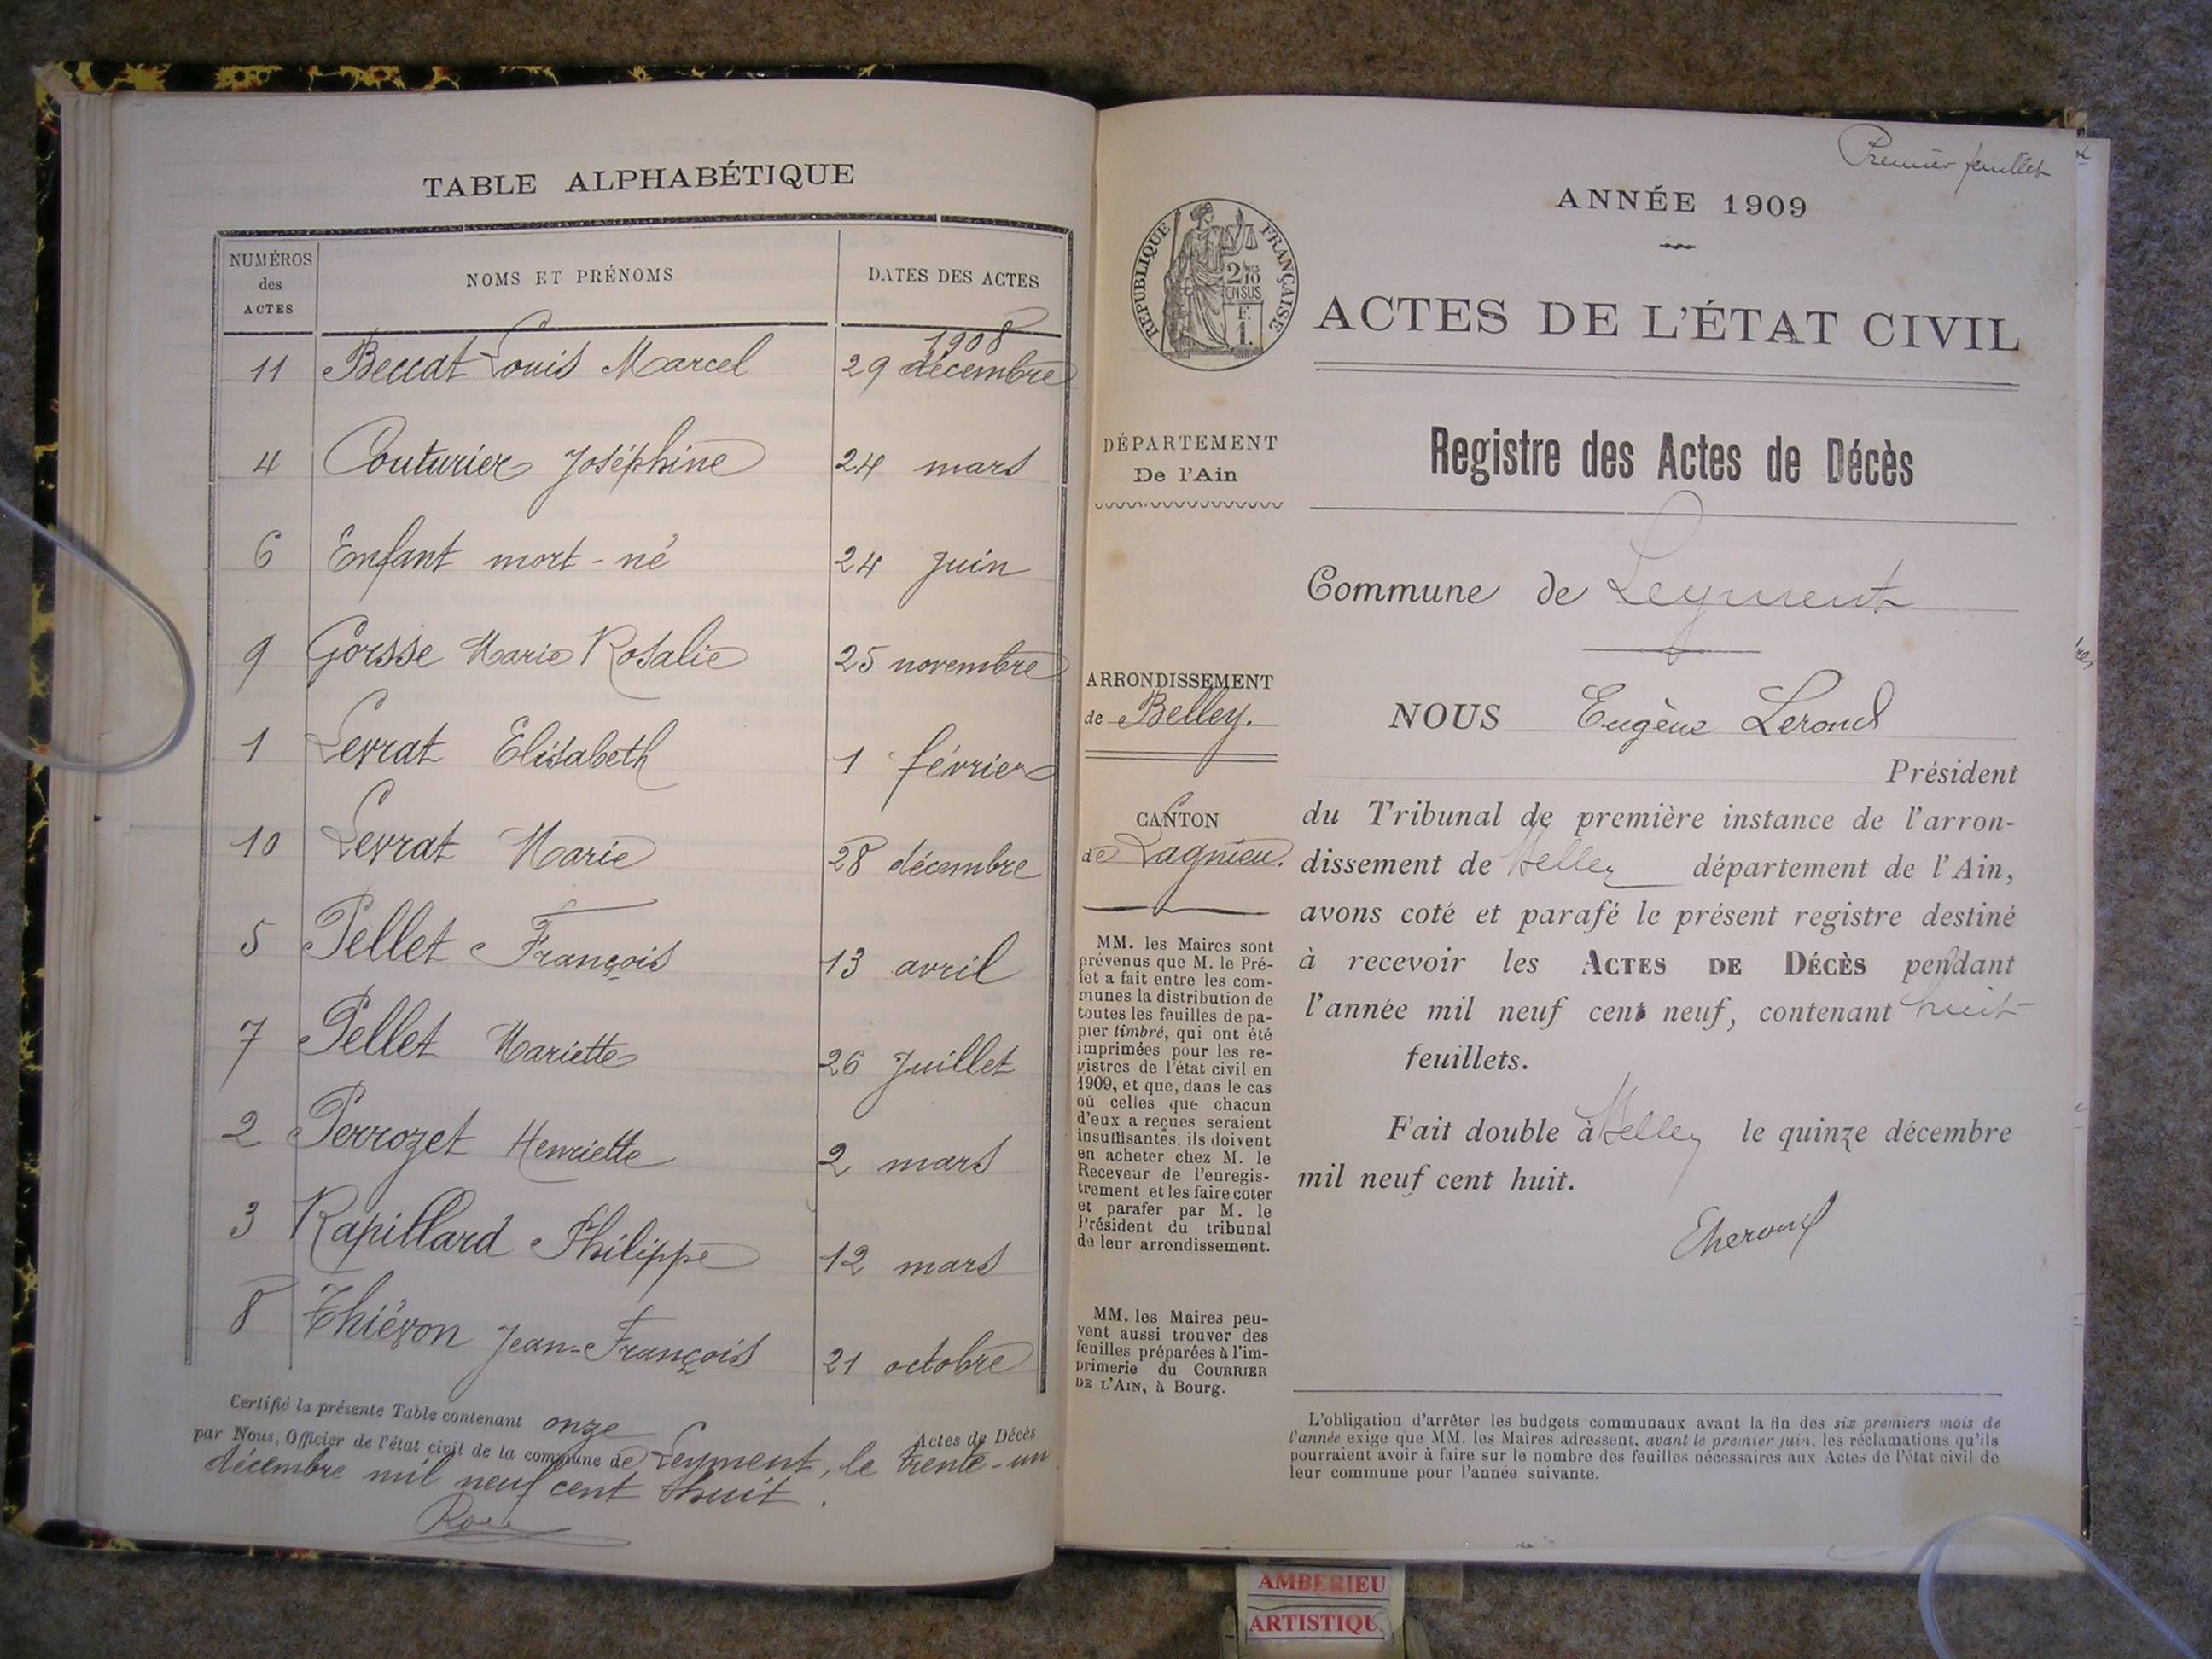 TABLE ALPHABÉTIQUE
NUMÉROS des ACTES NOMS ET PRÉNOMS DATES DES ACTES
1908
11 Beccat Louis Marcel 29 décembre
4 Couturier Joséphine 24 mars
6 Enfant mort-né 24 Juin
9 Gorsse Marie Rosalie 25 novembre
1 Levrat Elisabeth 1 février
10 Levrat Marie 28 décembre
5 Pellet François 13 avril
7 Pellet Mariette 26 Juillet
2 Perrozet Henriette 2 mars
3 Rapillard Philippe 12 mars
8 Thiévon Jean-François 21 octobre
Certifié la présente Table contenant onze Actes de Décès
par Nous, Officier de l'état civil de la commune de Leyment, le trente-un
décembre mil neuf cent huit.
Premier feuillet
ANNÉE 1909
RÉPUBLIQUE FRANÇAISE
2/10
EN SUS
F.
1.
ACTES DE L'ÉTAT CIVIL
DÉPARTEMENT
De l'Ain
ARRONDISSEMENT
de Belley.
CANTON
de Lagnieu.
MM. les Maires sont
prévenus que M. le Pré-
fet a fait entre les com-
munes la distribution de
toutes les feuilles de pa-
pier timbré, qui ont été
imprimées pour les re-
gistres de l'état civil en
1909, et que, dans le cas
où celles que chacun
d'eux a reçues seraient
insuffisantes, ils doivent
en acheter chez M. le
Receveur de l'enregis-
trement et les faire coter
et parafer par M. le
Président du tribunal
de leur arrondissement.
MM. les Maires peu-
vent aussi trouver des
feuilles préparées à l'im-
primerie du COURRIER
DE L'AIN, à Bourg.
Registre des Actes de Décès
Commune de Leyment
NOUS Eugène Lerond
Président
du Tribunal de première instance de l'arron-
dissement de Belley département de l'Ain,
avons coté et parafé le présent registre destiné
à recevoir les ACTES DE DÉCÈS pendant
l'année mil neuf cent neuf, contenant huit
feuillets.
Fait double à Belley le quinze décembre
mil neuf cent huit.
L'obligation d'arrêter les budgets communaux avant la fin des six premiers mois de
l'année exige que MM. les Maires adressent, avant le premier juin, les réclamations qu'ils
pourraient avoir à faire sur le nombre des feuilles nécessaires aux Actes de l'état civil de
leur commune pour l'année suivante.
AMBERIEU
ARTISTIQU